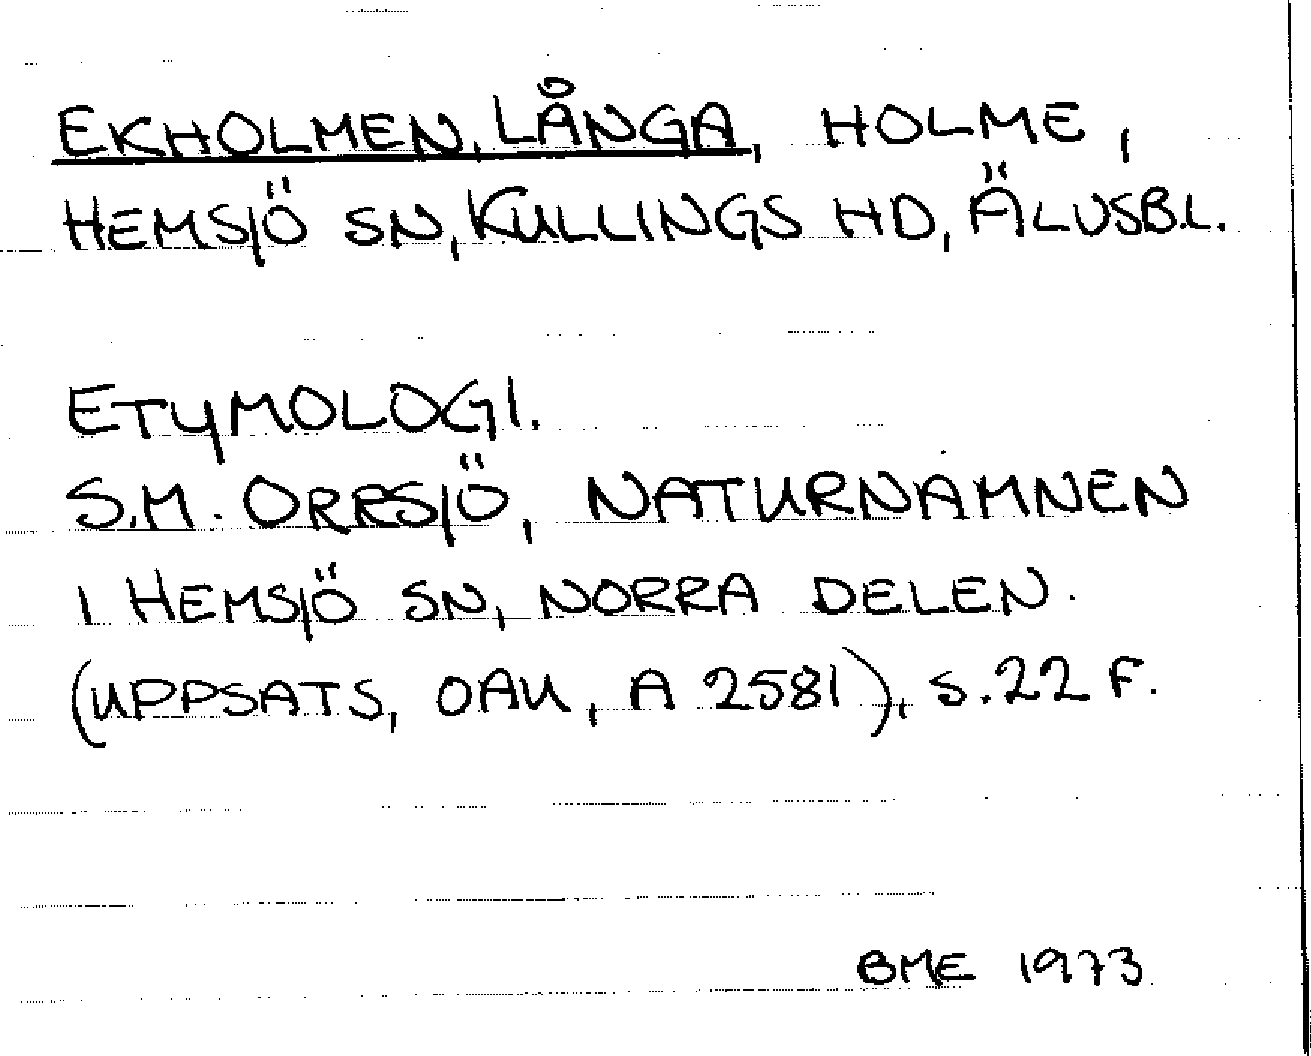 EKHOLMEN, LÅNGA, HOLME,
HEMSJÖ SN, KULLINGS HD, ÄLVSB.L.
ETYMOLOGI.
S.M. ORRSJÖ, NATURNAMNEN
I HEMSJÖ SN, NORRA DELEN.
(UPPSATS, OAU, A 2581), s. 22 F.
BME 1973